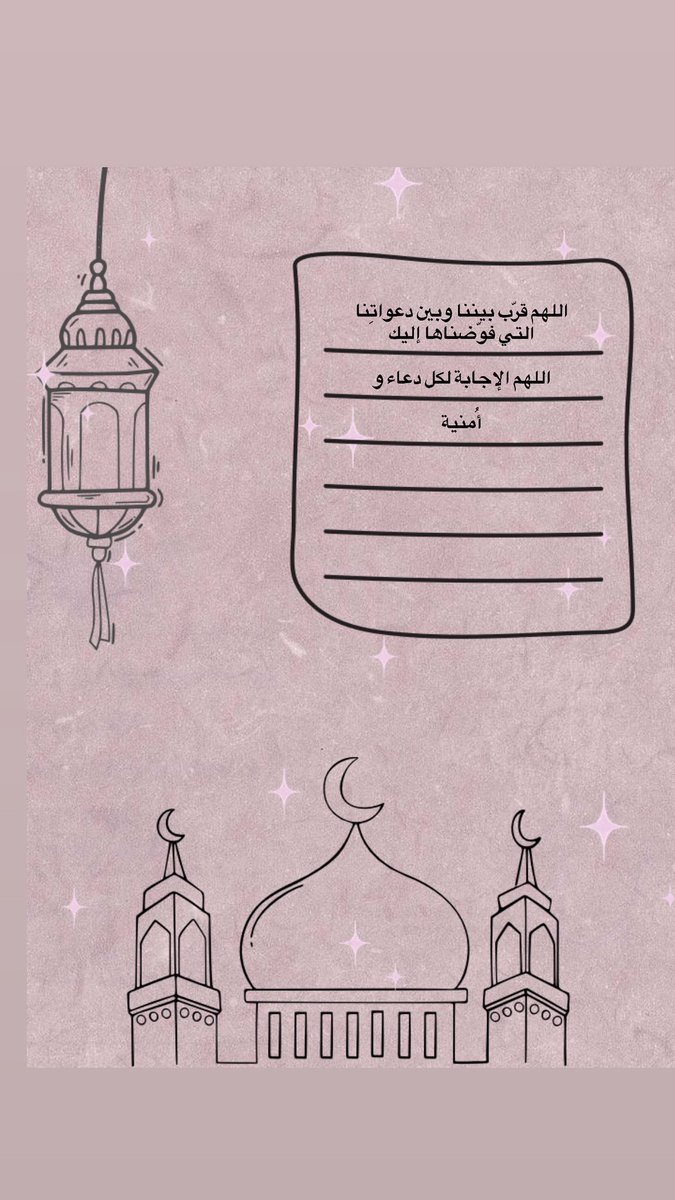 اللهم قرّب بيننا وبين دعواتِنا
التي فوّضناها إليك
اللهم الإجابة لكل دعاء و
أُمنية